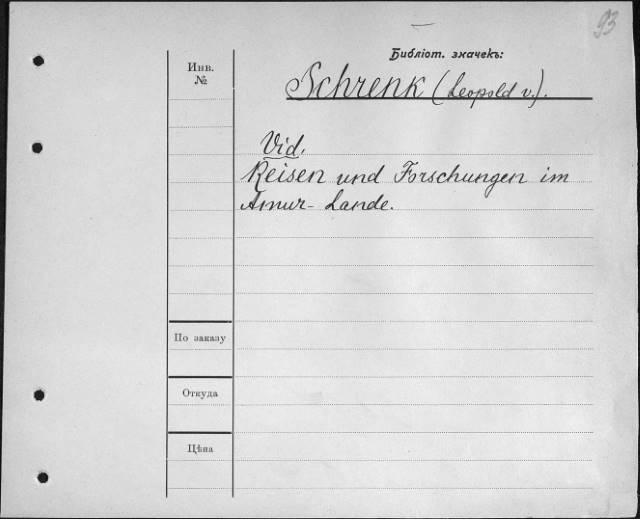 93
Библіот. значекъ:
Инв.
№
Schrenk (Leopold v.).
Vid.
Reisen und Forschungen im
Amur-Lande.
По заказу
Откуда
Цѣна